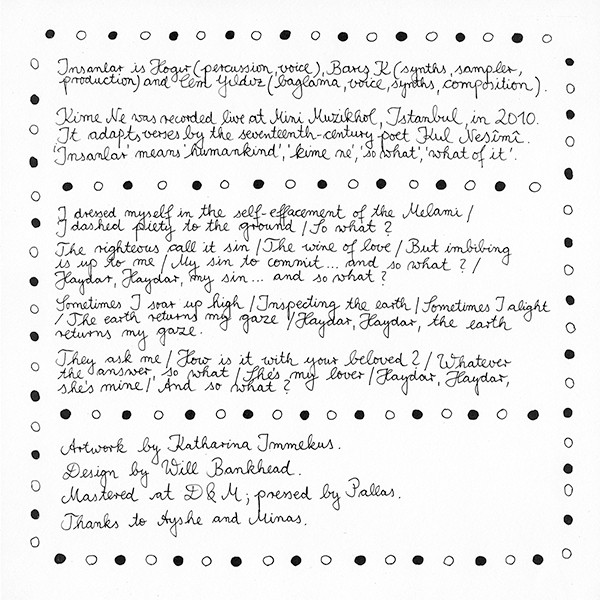 Insanlar is Hogir (percussion, voice), Barış K (synths, sampler,
production) and Cem Yıldız (bağlama, voice, synths, composition).
Kime Ne was recorded live at Mini Muzikhol, Istanbul, in 2010.
It adapts verses by the seventeenth-century poet Kul Nesîmî.
'Insanlar means 'humankind', 'kime ne', 'so what', 'what of it'.
I dressed myself in the self-effacement of the Melami /
I dashed piety to the ground / So what ?
The righteous call it sin / The wine of love / But imbibing
is up to me / My sin to commit ... and so what ? /
Haydar, Haydar, my sin ... and so what ?
Sometimes I soar up high / Inspecting the earth / Sometimes I alight
/ The earth returns my gaze / Haydar, Haydar, the earth
returns my gaze.
They ask me / How is it with your beloved ? / Whatever
the answer, so what / She's my lover / Haydar, Haydar,
she's mine / And so what ?
Artwork by Katharina Immekus.
Design by Will Bankhead.
Mastered at D & M ; pressed by Pallas.
Thanks to Ayshe and Minas.